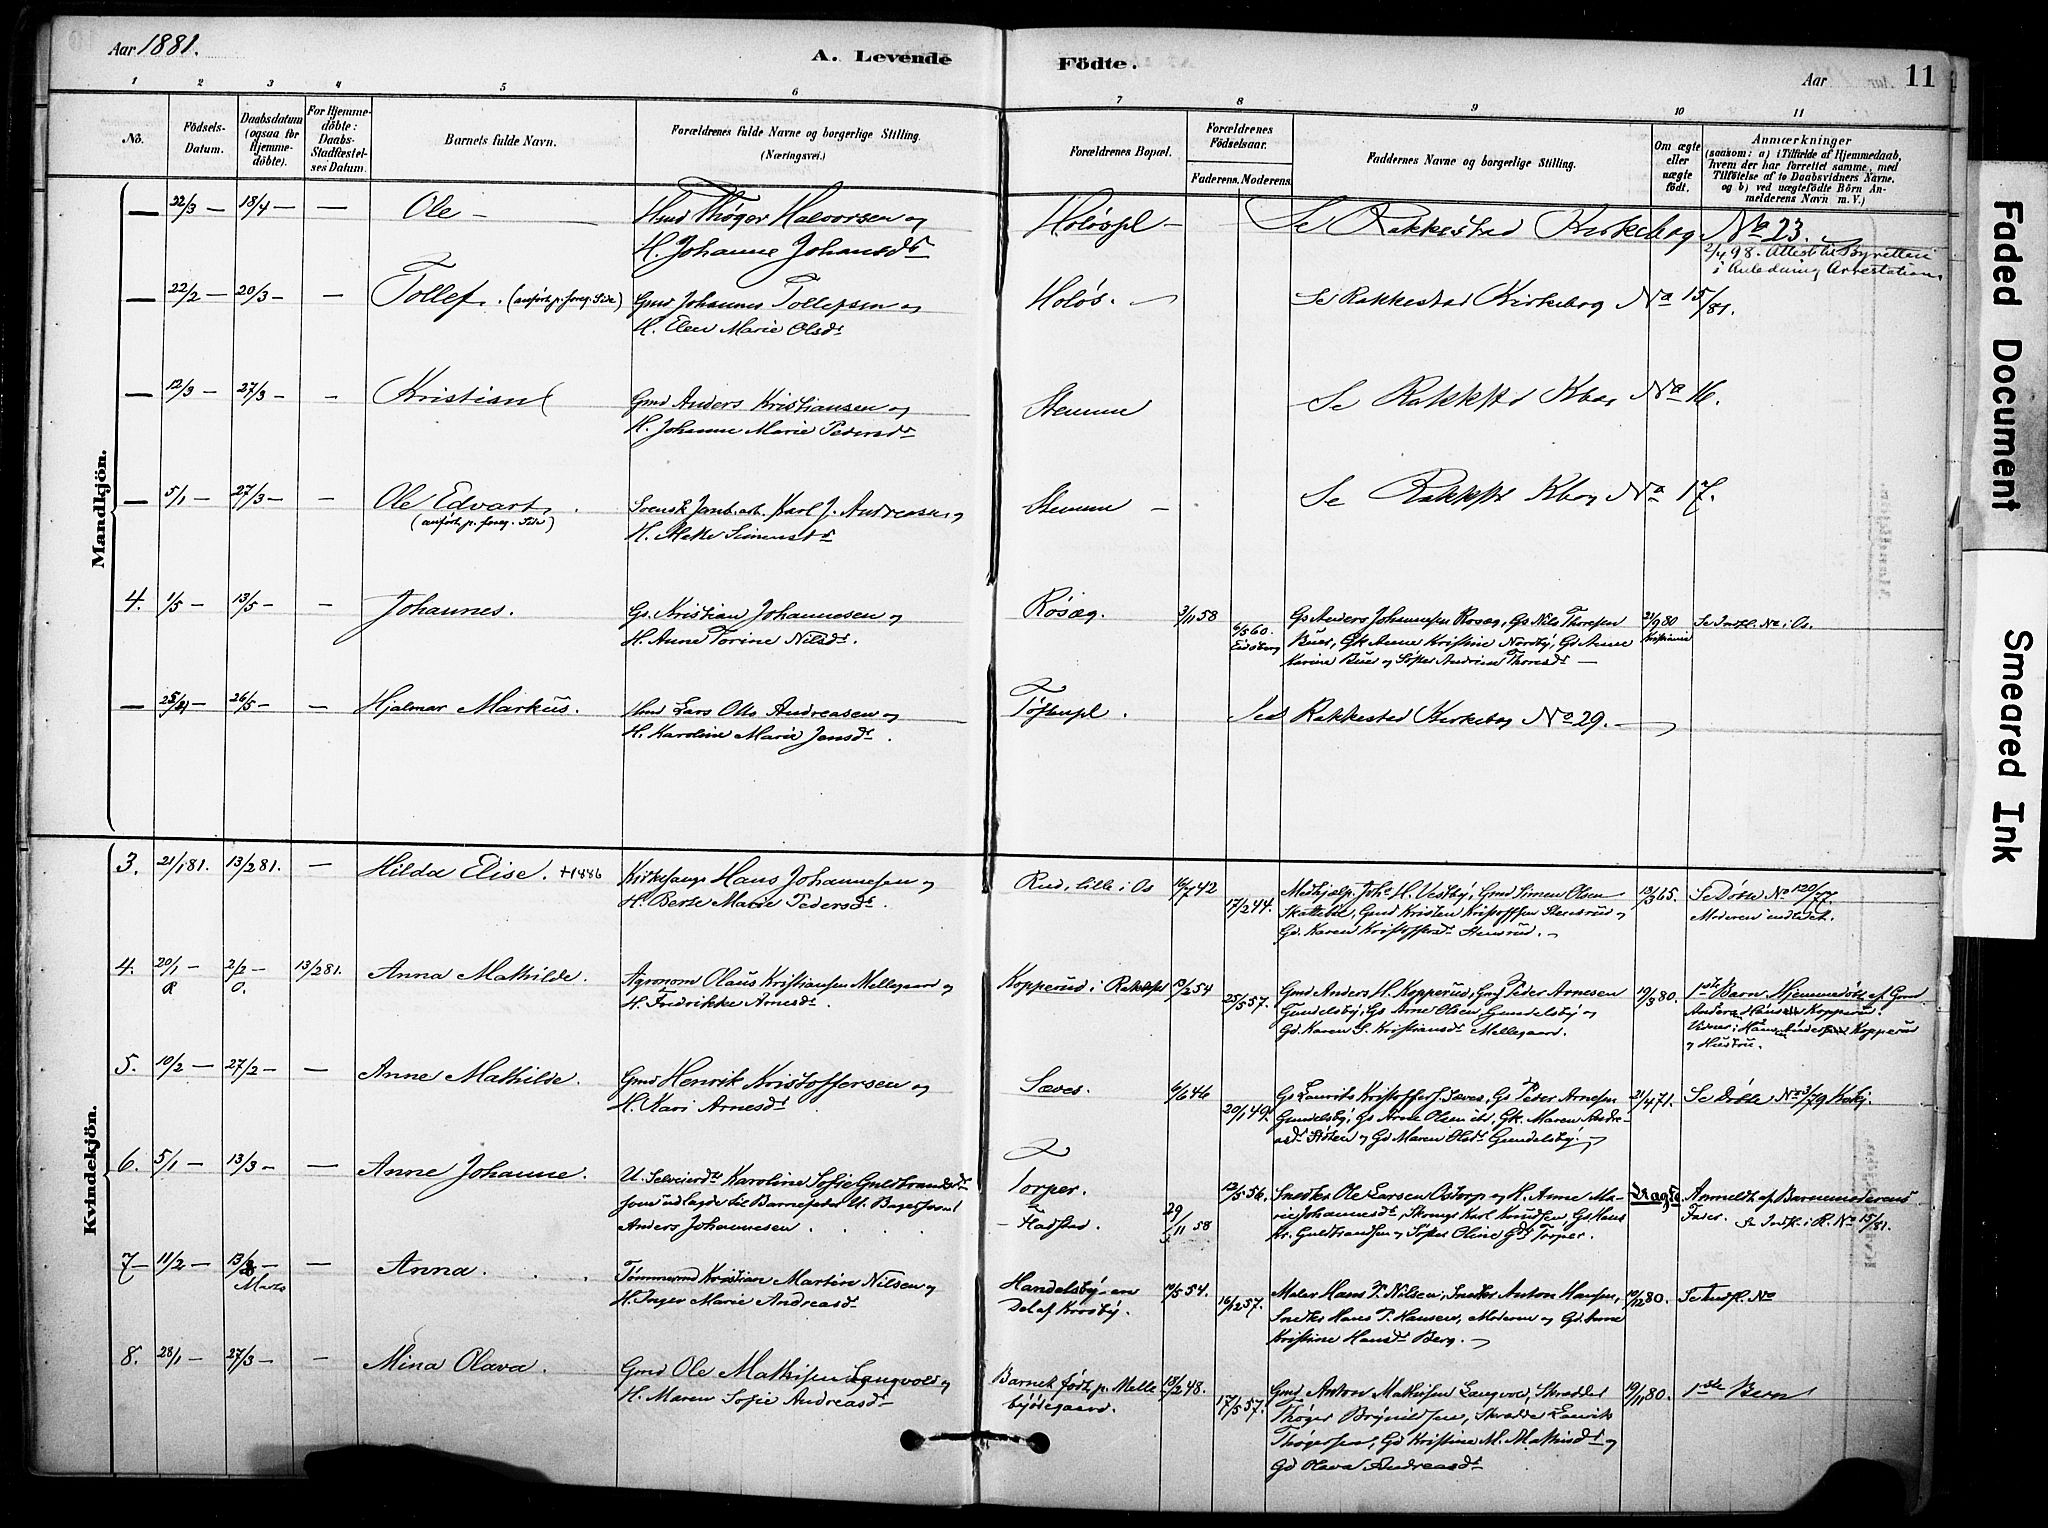 Aar 1881.
A. Levende Födte.
Aar
11
1 2 3 4 5 6 7 8 9 10 11
No.
Födsels-
Datum.
Daabsdatum
(ogsaa for
Hjemme-
döbte).
For Hjemme-
döbte:
Daabs-
Stadfæstel-
ses Datum.
Barnets fulde Navn.
Forældrenes fulde Navne og borgerlige Stilling.
(Næringsvei.)
Forældrenes Bopæl.
Forældrenes
Födselsaar.
Faderens. Moderens.
Faddernes Navne og borgerlige Stilling.
Om ægte
eller
uægte
födt.
Anmærkninger
(saasom: a) i Tilfælde af Hjemmedaab,
hvem der har forrettet samme, med
Tilföielse af to Daabsvidners Navne.
og b) ved uægtefödte Börn An-
melderens Navn m. V.)
Mandkjön.
— 22/3 — 18/4 — — Ole — Hmd Thøger Halvorsen og
H. Johanne Johansdt
Holøspl — Se Rakkestad Kirkebog No 23.
2/4 98. Attest til Byretten
i Anledning Arrestation
— 22/2 — 20/3 — — Tollef. (anført p. foreg. Side) Gmd Johannes Tollefsen og
H. Elen Marie Olsdt
Holøs. — Se Rakkestad Kirkebog No 15/81.
— 12/3 — 27/3 — — Kristian Gmd Anders Kristiansen og
H. Johanne Marie Pedersdt
Stemme Se Rakkst Kbog No 16.
— 5/1 — 27/3 — — Ole Edvart
(anført p. foreg. Side)
Svensk Jernb. arb. Karl J. Andreasen og
H. Mette Simensdt
Stemme — Se Rakkst Kbog No 17.
4. 1/5 — 13/5 — — Johannes. Gs. Kristian Johannesen og
H. Anne Torine Nilsdt.
Røsæg. 3/11 58 6/5 60.
Eidsberg
Gs Anders Johannesen Rosæg, Gs Nils Thoresen
Buer, Gk Anne Kristine Nordby, Gd Anne
Karine Buer og Søster Andrine Thoresdt —
80
Kristiania
Se Indfl. No i Os.
— 26/5 — — Hjalmar Markus. Hmd Lars Otto Andreasen og
H. Karoline Marie Jensdt.
Tøfterpl. Se Rakkestad Kirkebog No 29. —
Kvindekjön.
3. 21/1 81. 13/2 81. — Hilda Elise. +1886 Kirkesanger Hans Johannesen og
H. Berte Marie Pedersdt.
Rud, lille i Os 16/7 42 17/2 44.
Medhjælp. Johs H. Vestby, Gmd Simen Olsen
Skattebøl, Gmd Kristen Kristoffsen Stensrud og
Gd. Karen Kristoffersdt Stensrud. —
13/3 65. Se Døbte No 120/77.
Moderen indledet.
4. 20/1 — R 2/2 — O. 13/2 81. Anna Mathilde. Agronom Olaus Kristiansen Mellegaard og
H. Fredrikke Arnesdt.
Kopperud i Rakkest 19/2 54 25/5 57.
Gmd Anders H. Kopperud, Gmd Peder Arnesen
Gundelsby, Gs Arne Olsen Gundelsby og
Gd. Karen S. Kristiansdt Mellegaard.
19/3 80. 1ste Barn Hjemmedøbt af Gmd
Anders Hans Kopperud.
Vidner: Hans Kopperud
og Hustru.
5. 10/2 — 27/2 — — Anne Mathilde. Gmd Henrik Kristoffersen og
H. Kari Arnesdt.
Sæves. 6/6 46 20/1 49.
Gs Laurits Kristoffers. Sæves, Gs Peder Arnesen
Gundelsby, Gs Arne Olsen ibd., Gk. Maren Andre-
asdt Støten og Gd Maren Olsdt Gundelsby. —
21/4 71. Se Døbte No 3/79
6. 5/1 — 13/3 — — Anne Johanne. U. Selveierdt Karoline Sofie Guldbrandsdt
som udlagde til Barnefader U. Bagersvend
Anders Johannesen
Torper.
— Hadstad. 29/11 58 12/5 56.
Snedker Ole Larsen Ostorp og H. Anne Ma-
rie Johannesdt, Karl Knudsen, Gs Hans
Kr. Guldbrandsen og Søster Oline Gdt Torper.
Uægte Anmeldt af Barnemoderens
Fader. Se Indfl. i R. No 15/81.
7 — 11/2 — 13/3 — Marts — Anna. Tømmermd Kristian Martin Nilsen og
H. Inger Marie Andreasdt
Handelsby en
Del af Krosby. 10/5 54. 16/12 57.
Maler Hans P. Nilsen, Snedker Anton Hansen,
Snedker Hans P. Hansen, Moderen og Gd. Anne
Kristine Hansdt Berg. —
19/12 80. Se Indfl. No
8. 28/1 — 27/3 — — Mina Olava. Gmd Ole Mathisen Langvold og
H. Maren Sofie Andreasdt
Barnet født p. Melle
byødegaard. 18/2 48. 17/5 57.
Gmd Anton Mathisen Langvold, Skrædder
Thøger Brynildsen, Skrædder Laurits
Thøgersen, Gd Kristine M. Mathisdt og
Gd Olava Andreasdt
19/11 80. 1ste Barn
Faded Document
Smeared Ink